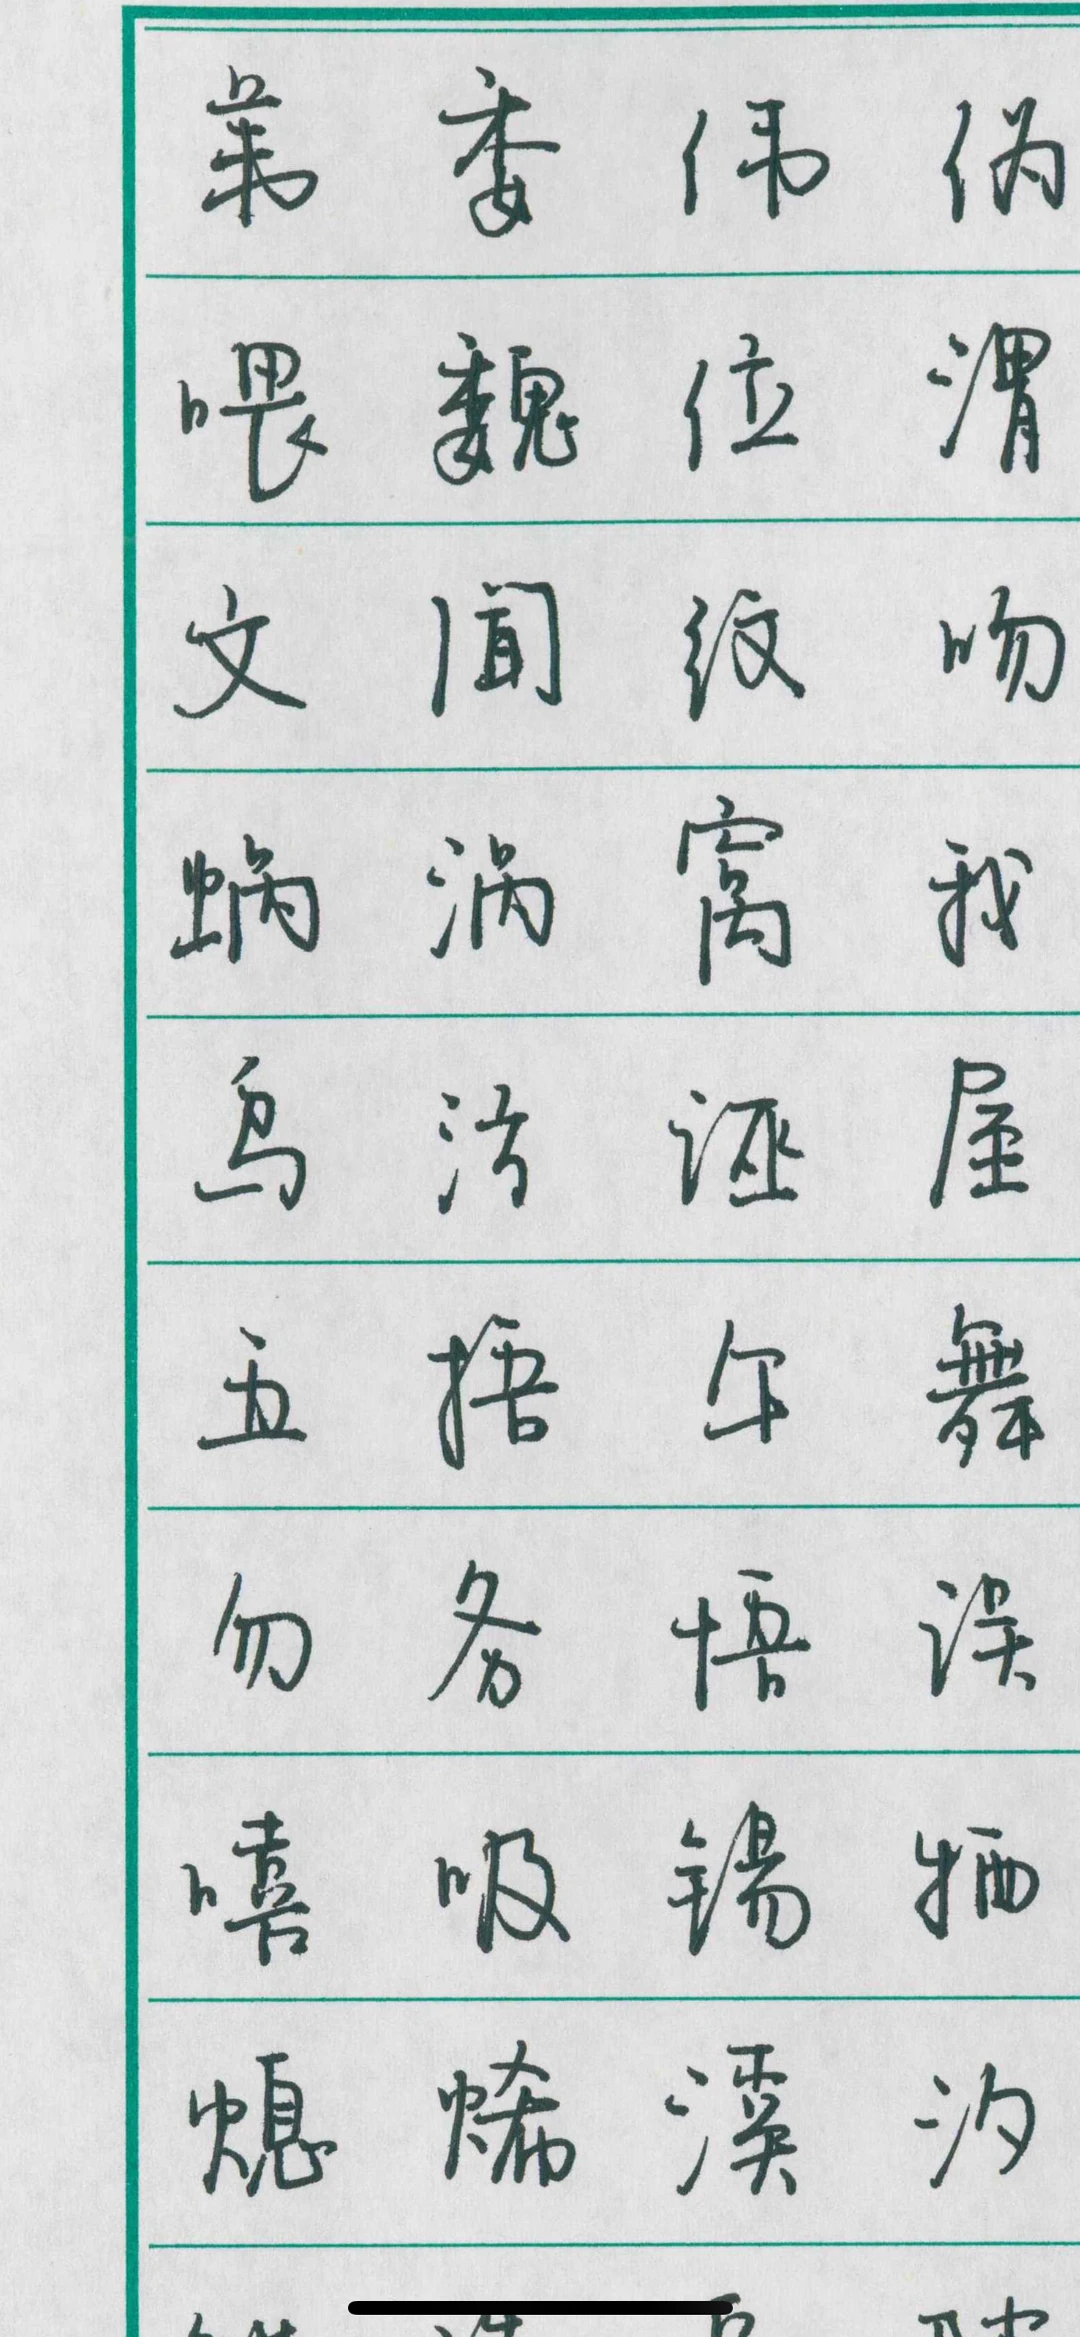 苇 委 伟 伪
喂 魏 位 渭
文 闻 纹 吻
蜗 涡 窝 我
乌 污 诬 屋
五 捂 午 舞
勿 务 悟 误
嘻 吸 锡 牺
熄 烯 溪 汐